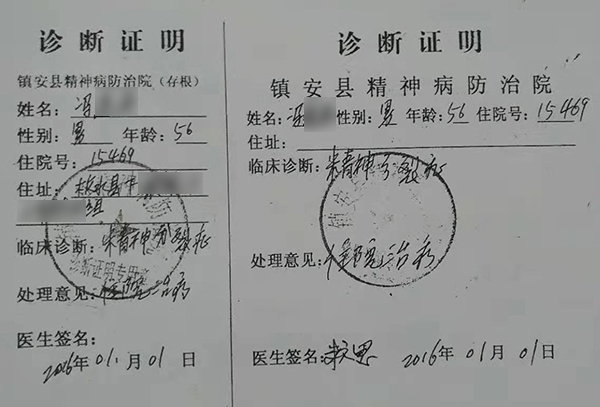 诊断证明
镇安县精神病防治院（存根）
姓名：冯
性别：男 年龄：56
住院号：15469
住址：柞水县
组
临床诊断：精神分裂症
诊断证明专用章
处理意见：住院治疗
医生签名：
2016年01月01日
诊断证明
镇安县精神病防治院
姓名：冯 性别：男 年龄：56 住院号：15469
住址：
临床诊断：精神分裂症
镇安县
处理意见：住院治疗
医生签名：
2016年01月01日